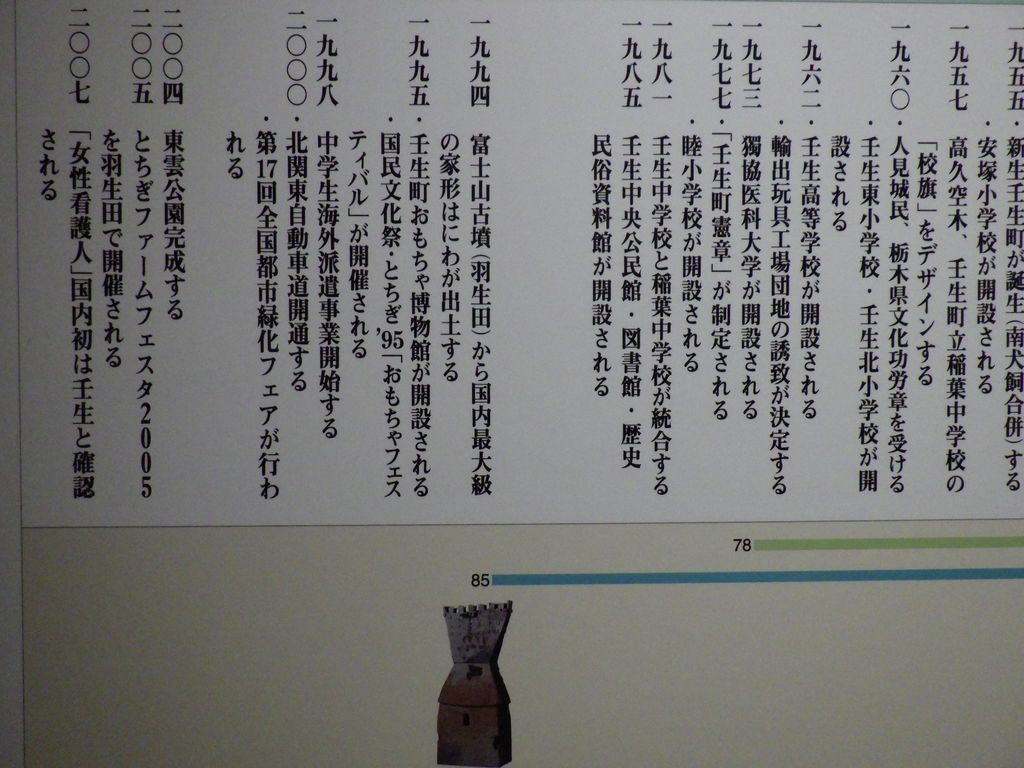 一九五五・新生壬生町が誕生(南犬飼合併)する
・安塚小学校が開設される
一九五七 高久空木、壬生町立稲葉中学校の
「校旗」をデザインする
一九六〇・人見城民、栃木県文化功労章を受ける
・壬生東小学校・壬生北小学校が開
設される
一九六二・壬生高等学校が開設される
・輸出玩具工場団地の誘致が決定する
一九七三 獨協医科大学が開設される
一九七七・「壬生町憲章」が制定される
・睦小学校が開設される
一九八一 壬生中学校と稲葉中学校が統合する
一九八五 壬生中央公民館・図書館・歴史
民俗資料館が開設される
一九九四 富士山古墳(羽生田)から国内最大級
の家形はにわが出土する
一九九五・壬生町おもちゃ博物館が開設される
・国民文化祭・とちぎ'95「おもちゃフェス
ティバル」が開催される
一九九八 中学生海外派遣事業開始する
二〇〇〇・北関東自動車道開通する
・第17回全国都市緑化フェアが行わ
れる
二〇〇四 東雲公園完成する
二〇〇五 とちぎファームフェスタ2005
を羽生田で開催される
二〇〇七 「女性看護人」国内初は壬生と確認
される
78
85